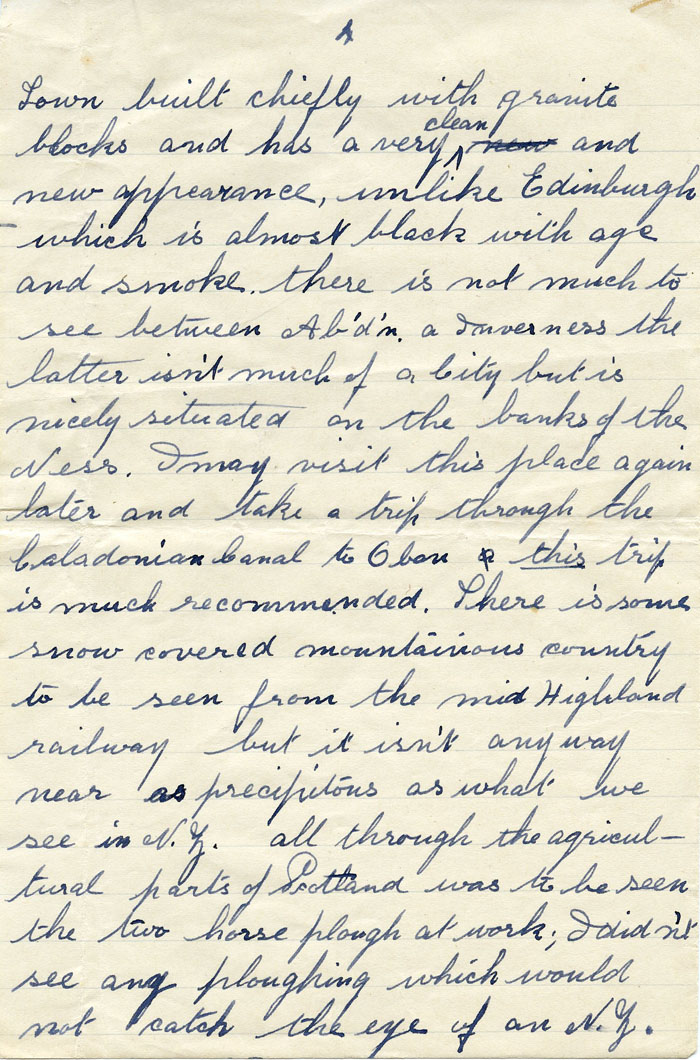 Town built chiefly with granite
blocks and has a very clean new and
new appearance, unlike Edinburgh
which is almost black with age
and smoke. there is not much to
see between Ab'd'n. a Inverness the
latter isn't much of a City but is
nicely situated on the banks of the
Ness. I may visit this place again
later and take a trip through the
Caladonian Canal to Oban & this trip
is much recommended. There is some
snow covered mountainious country
to be seen from the mid Highland
railway but it isn't any way
near as precipitous as what we
see in N.Z. all through the agricul-
tural parts of Scotland was to be seen
the two horse plough at work; I did n't
see any ploughing which would
not catch the eye of an N.Z.